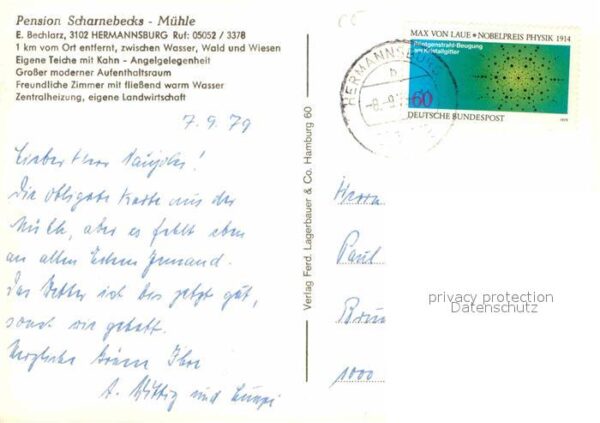 Pension Scharnebecks - Mühle
E. Bechlarz, 3102 HERMANNSBURG Ruf: 05052 / 3378
1 km vom Ort entfernt, zwischen Wasser, Wald und Wiesen
Eigene Teiche mit Kahn - Angelgelegenheit
Großer moderner Aufenthaltsraum
Freundliche Zimmer mit fließend warm Wasser
Zentralheizung, eigene Landwirtschaft
7.9.79
Lieber Herr
Die obligate Karte aus der
Mühle, aber es fehlt eben
an allen Ecken Jemand.
Das Wetter ist bis jetzt gut,
sonst wie gehabt.
Herzliche Grüsse Ihre
A. Wittig und
Verlag Ferd. Lagerbauer & Co. Hamburg 60
MAX VON LAUE • NOBELPREIS PHYSIK 1914
Röntgenstrahl-Beugung
am Kristallgitter
60
DEUTSCHE BUNDESPOST
1979
HERMANNSBURG
b
-8.-9.
Herrn
Paul
1000
privacy protection
Datenschutz